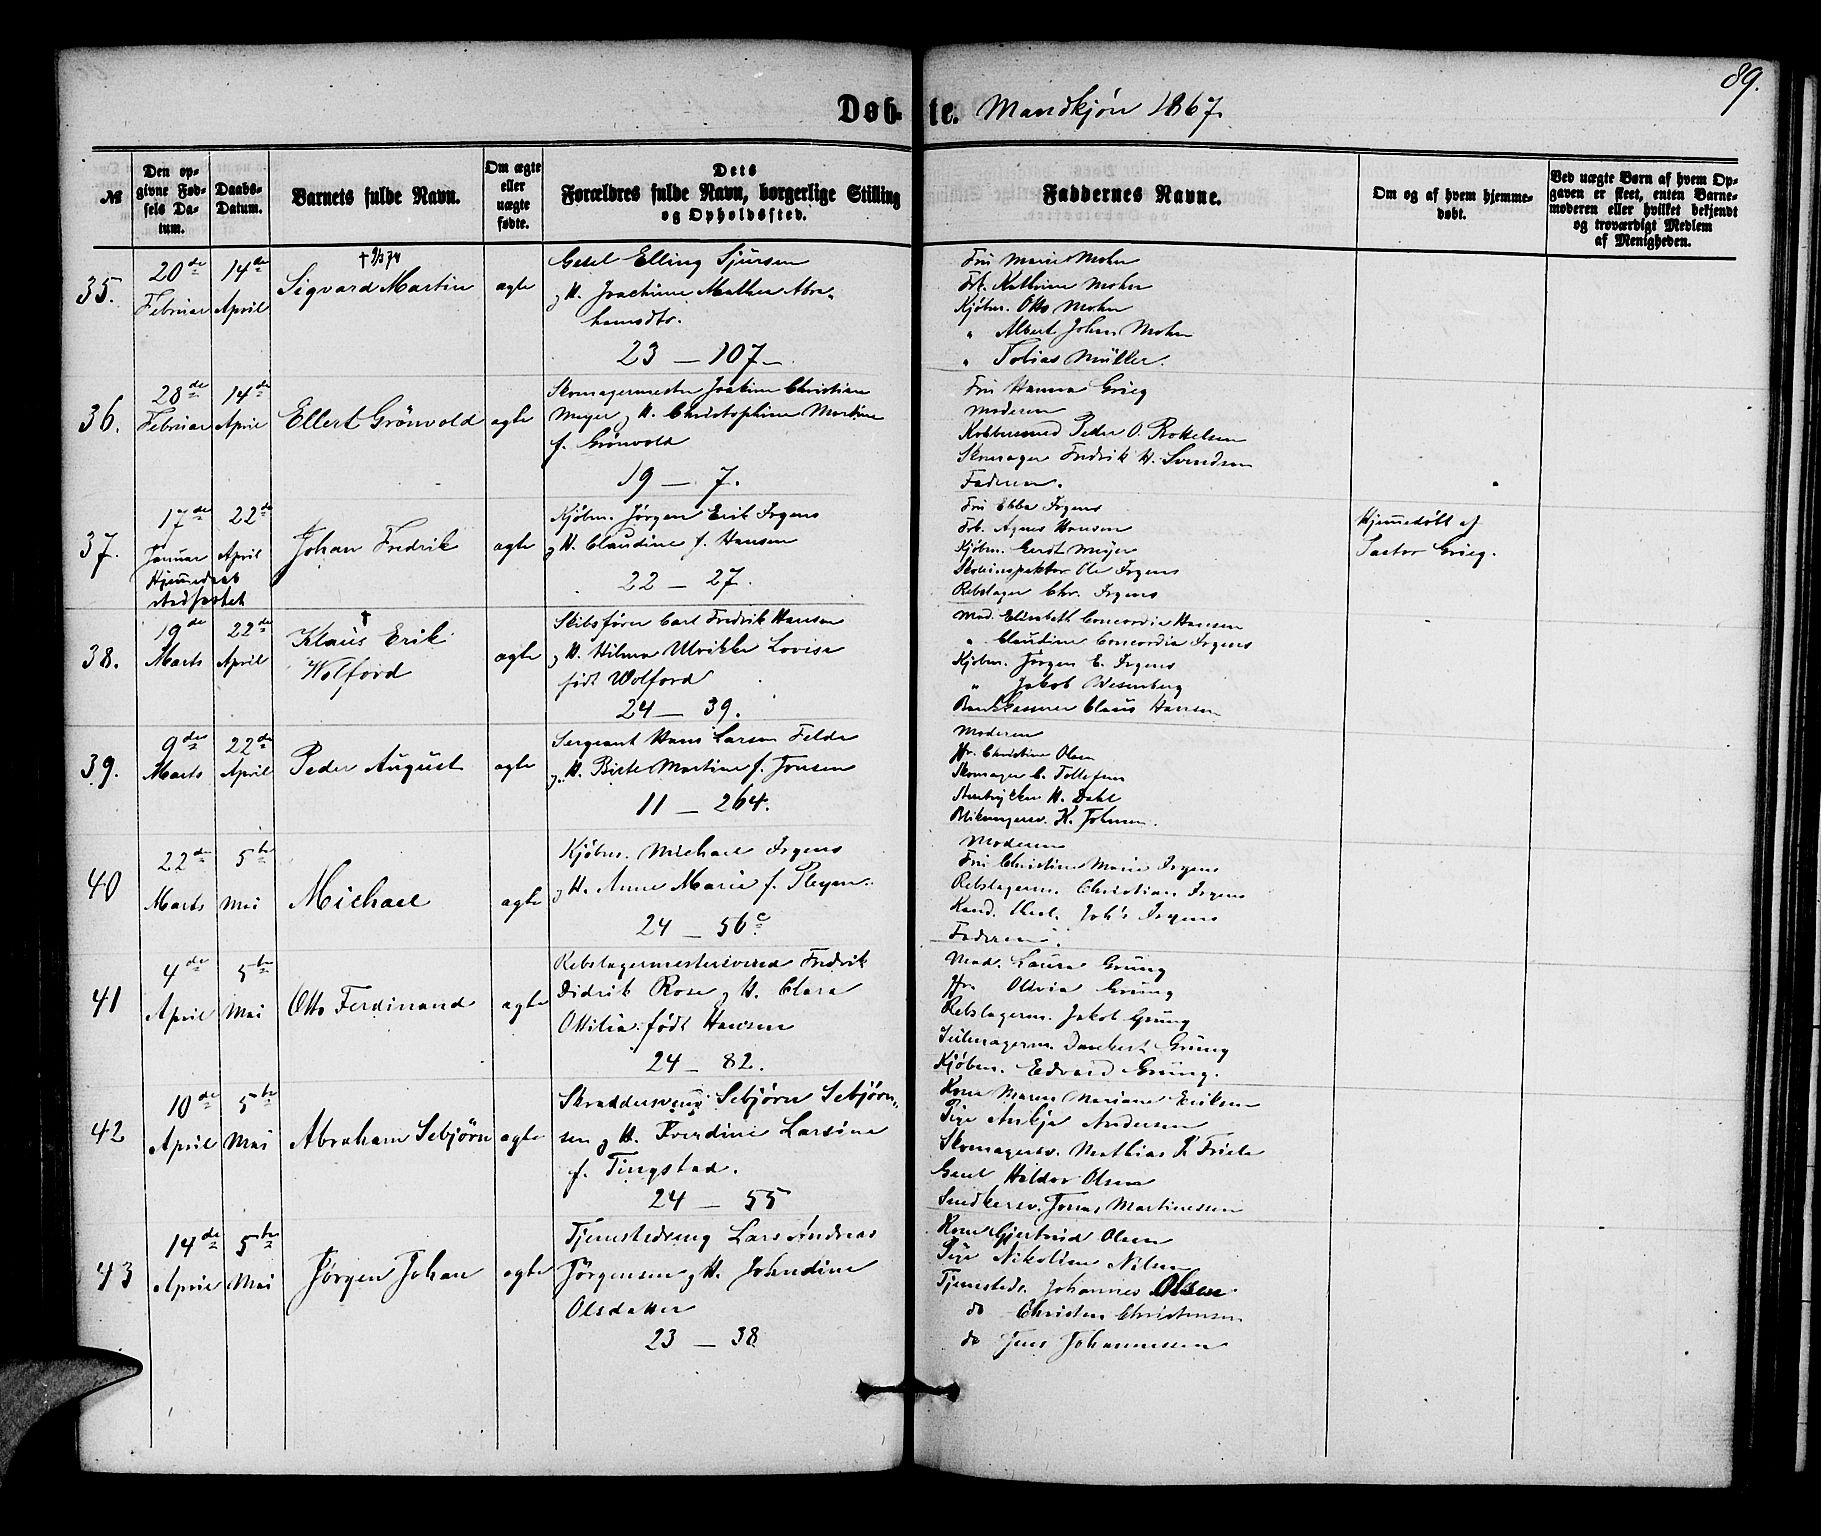 89.
Døbte. Mandkjön 1867.
№
Den opgivne Fødsels Datum.
Daabs-Datum.
Barnets fulde Navn.
Om ægte eller uægte fødte.
Dets Forældres fulde Navn, borgerlige Stilling og Opholdssted.
Faddernes Navne.
Om og af hvem hjemmedøbt.
Ved uægte Børn af hvem Opgaven er skeet, enten Barnemoderen eller hvilket bekjendt og troværdigt Medlem af Menigheden.
35.
20de Februar
14de April
Sigvard Martin
ægte
Gesel Elling Sjursen
og H. Joachime Mathea Abra-
hamsdtr.
23 — 107
Fru Marie Mohn
Frk. Kathrine Mohn
Kjöbm. Otto Mohn
" Albert Johan Mohn
" Tobias Müller.
36.
28de Februar
14de April
Ellert Grönvold
ægte
Skomagermester Joakim Christian
Meyer og H. Christophine Martine
f. Grönvold
19 — 7.
Fru Hanna Grieg
Moderen
Kobbersmed Peder O. Rokelsen
Skomager Fredrik H. Svendsen
Faderen.
37.
17de Januar
Hjemmedaab
stadfæstet
22de April
Johan Fredrik
ægte
Kjöbm. Jörgen Erik Irgens
og H. Claudine f. Hansen
22 — 27.
Fru Ebba Irgens
Frk. Agnes Hansen
Kjöbm. Gerdt Meyer
Skoleinspektør Ole Irgens
Rebslager Chr. Irgens
Hjemmedöbt af
Pastor Grieg.
38.
19de Marts
22de April
†
Klaus Erik
Wolford
ægte
Skibsförer Carl Fredrik Hansen
og H. Hilma Ulrikke Lovise
födt Wolford
24 — 39.
Mad. Elisabeth Concordia Hansen
" Claudine Concordia Irgens
Kjöbm. Jörgen E. Irgens
" Jakob Wesenberg
Bankkasserer Claus Hansen
39.
9de Marts
22de April
Peder August
ægte
Sergeant Hans Larsen Felde
og H. Birte Martine f. Jonsen
11 — 264.
Moderen
Jfr. Christine Olsen
Skomager C. Tollefsen
H. Dahl
K. Johnsen.
40
22de Marts
5te Mai
Michael
ægte
Kjöbm. Michael Irgens
og H. Anne Marie f. Pleyen.
24 — 56c.
Moderen
Fru Christine Marie Irgens
Rebslagerm. Christian Irgens
Kand. theol. Joh's Irgens
Faderen.
41
4de April
5te Mai
Otto Ferdinand
ægte
Rebslagermestersvend Fredrik
Didrik Rose og H. Clara
Ottilia födt Hansen
24 — 82.
Mad. Laura Grung
Jfr. Olivia Grung
Rebslagerm. Jakob Grung
Seilmagerm. Dankert Grung
Kjöbm. Edvard Grung.
42
10de April
5te Mai
Abraham Sebjörn
ægte
Skræddersvend Sebjörn Sebjörn-
sen og H. Sverdine Larsine
f. Tingstad.
24 — 55
Kone Maren Mariane Eriksen
Pige Anskje Andersen
Skomagersv. Mathias P. Friele
Gesel Haldor Olsen
Snedkersv. Jonas Martinussen
43
14de April
5te Mai
Jörgen Johan
ægte
Tjenestedreng Lars Andreas
Jörgensen og H. Johndine
Olsdatter
23 — 38
Kone Gjertrud Olsen
Pige Nikoline Nilsen
Tjenestedr. Johannes Olsen
do Christen Christensen
do Jens Johannessen